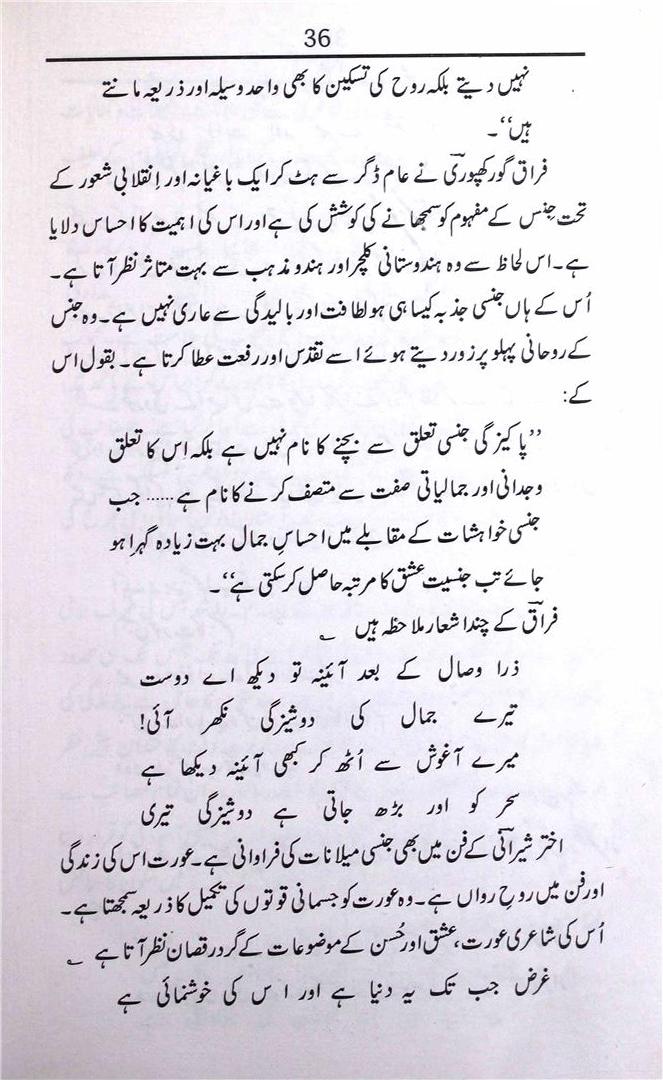 36
نہیں دیتے بلکہ روح کی تسکین کا بھی واحد وسیلہ اور ذریعہ مانتے
ہیں‘‘۔
فراق گورکھپوریؔ نے عام ڈگر سے ہٹ کر ایک باغیانہ اور اِنقلابی شعور کے
تحت جِنس کے مفہوم کو سمجھانے کی کوشش کی ہے اور اس کی اہمیت کا احساس دلایا
ہے۔ اس لحاظ سے وہ ہندوستانی کلچر اور ہندو مذہب سے بہت متاثر نظر آتا ہے۔
اُس کے ہاں جنسی جذبہ کیسا ہی ہو لطافت اور بالیدگی سے عاری نہیں ہے۔ وہ جنس
کے روحانی پہلو پر زور دیتے ہوئے اسے تقدّس اور رفعت عطا کرتا ہے۔ بقول اس
کے:
’’پاکیزگی جنسی تعلق سے بچنے کا نام نہیں ہے بلکہ اِس کا تعلق
وجدانی اور جمالیاتی صفت سے متصف کرنے کا نام ہے...... جب
جنسی خواہشات کے مقابلے میں احساسِ جمال بہت زیادہ گہرا ہو
جائے تب جنسیت عشق کا مرتبہ حاصل کر سکتی ہے‘‘۔
فراقؔ کے چند اشعار ملاحظہ ہیں ؎
ذرا وصال کے بعد آئینہ تو دیکھ اے دوست
تیرے جمال کی دوشیزگی نکھر آئی!
میرے آغوش سے اُٹھ کر کبھی آئینہ دیکھا ہے
سحر کو اور بڑھ جاتی ہے دوشیزگی تیری
اختر شیرانیؔ کے فن میں بھی جنسی میلانات کی فراوانی ہے۔ عورت اس کی زندگی
اور فن میں روحِ رواں ہے۔ وہ عورت کو جسمانی قوتوں کی تکمیل کا ذریعہ سمجھتا ہے۔
اُس کی شاعری عورت، عشق اور حُسن کے موضوعات کے گرد رقصان نظر آتا ہے ؎
غرض جب تک یہ دنیا ہے اور اس کی خوشنمائی ہے